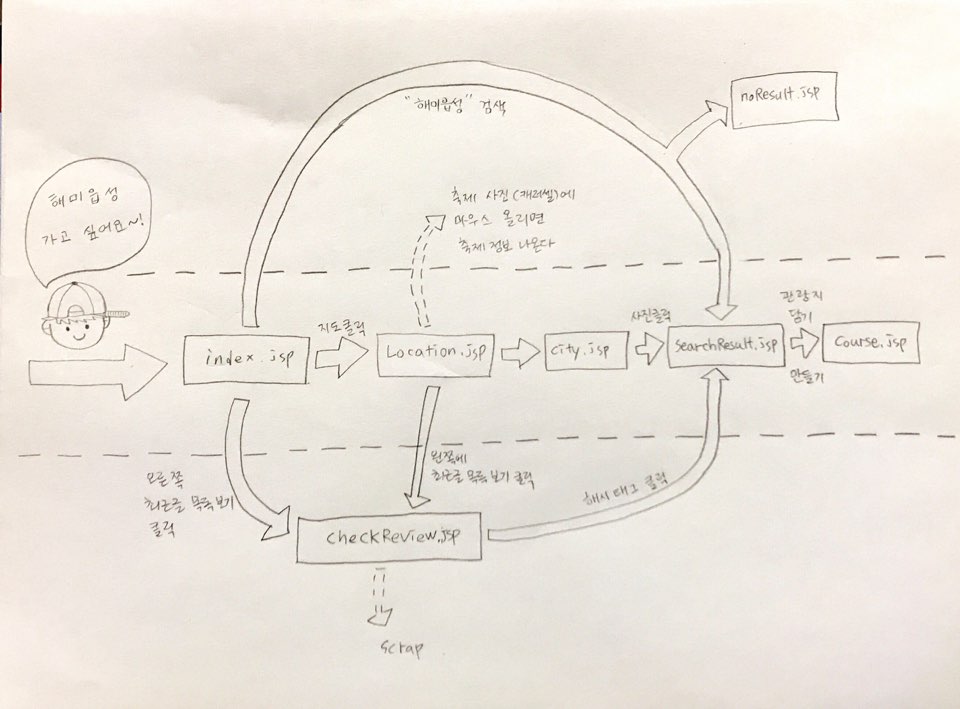 "해미읍성" 검색
noResult.jsp
해미읍성
가고 싶어요~!
축제 사진(캐러셀)에
마우스 올리면
축제 정보 나온다
index.jsp
지도클릭
Location.jsp
city.jsp
사진클릭
searchResult.jsp
관광지
담기
만들기
Course.jsp
오른쪽
최근글 목록 보기
클릭
왼쪽에
최근글 목록 보기 클릭
해시태그 클릭
checkReview.jsp
scrap